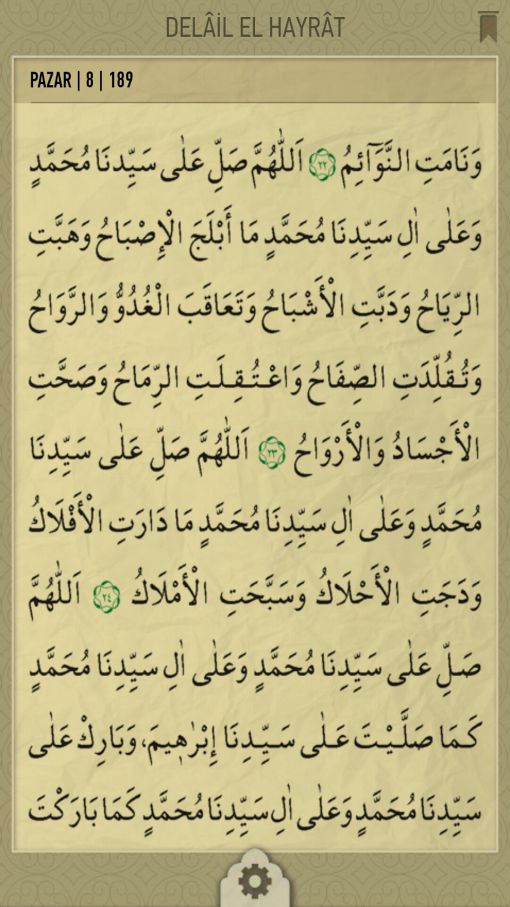 DELÂİL EL HAYRÂT
PAZAR | 8 | 189
وَنَامَتِ النَّوَٓائِمُ ﴿٢٢﴾ اَللّٰهُمَّ صَلِّ عَلٰى سَيِّدِنَا مُحَمَّدٍ
وَعَلٰى اٰلِ سَيِّدِنَا مُحَمَّدٍ مَا أَبْلَجَ الْإِصْبَاحُ وَهَبَّتِ
الرِّيَاحُ وَدَبَّتِ الْأَشْبَاحُ وَتَعَاقَبَ الْغُدُوُّ وَالرَّوَاحُ
وَتُقُلِّدَتِ الصِّفَاحُ وَاعْتُقِلَتِ الرِّمَاحُ وَصَحَّتِ
الْأَجْسَادُ وَالْأَرْوَاحُ ﴿٢٣﴾ اَللّٰهُمَّ صَلِّ عَلٰى سَيِّدِنَا
مُحَمَّدٍ وَعَلٰى اٰلِ سَيِّدِنَا مُحَمَّدٍ مَا دَارَتِ الْأَفْلَاكُ
وَدَجَتِ الْأَحْلَاكُ وَسَبَّحَتِ الْأَمْلَاكُ ﴿٢٤﴾ اَللّٰهُمَّ
صَلِّ عَلٰى سَيِّدِنَا مُحَمَّدٍ وَعَلٰى اٰلِ سَيِّدِنَا مُحَمَّدٍ
كَمَا صَلَّيْتَ عَلٰى سَيِّدِنَا إِبْرٰهٖيمَ، وَبَارِكْ عَلٰى
سَيِّدِنَا مُحَمَّدٍ وَعَلٰى اٰلِ سَيِّدِنَا مُحَمَّدٍ كَمَا بَارَكْتَ